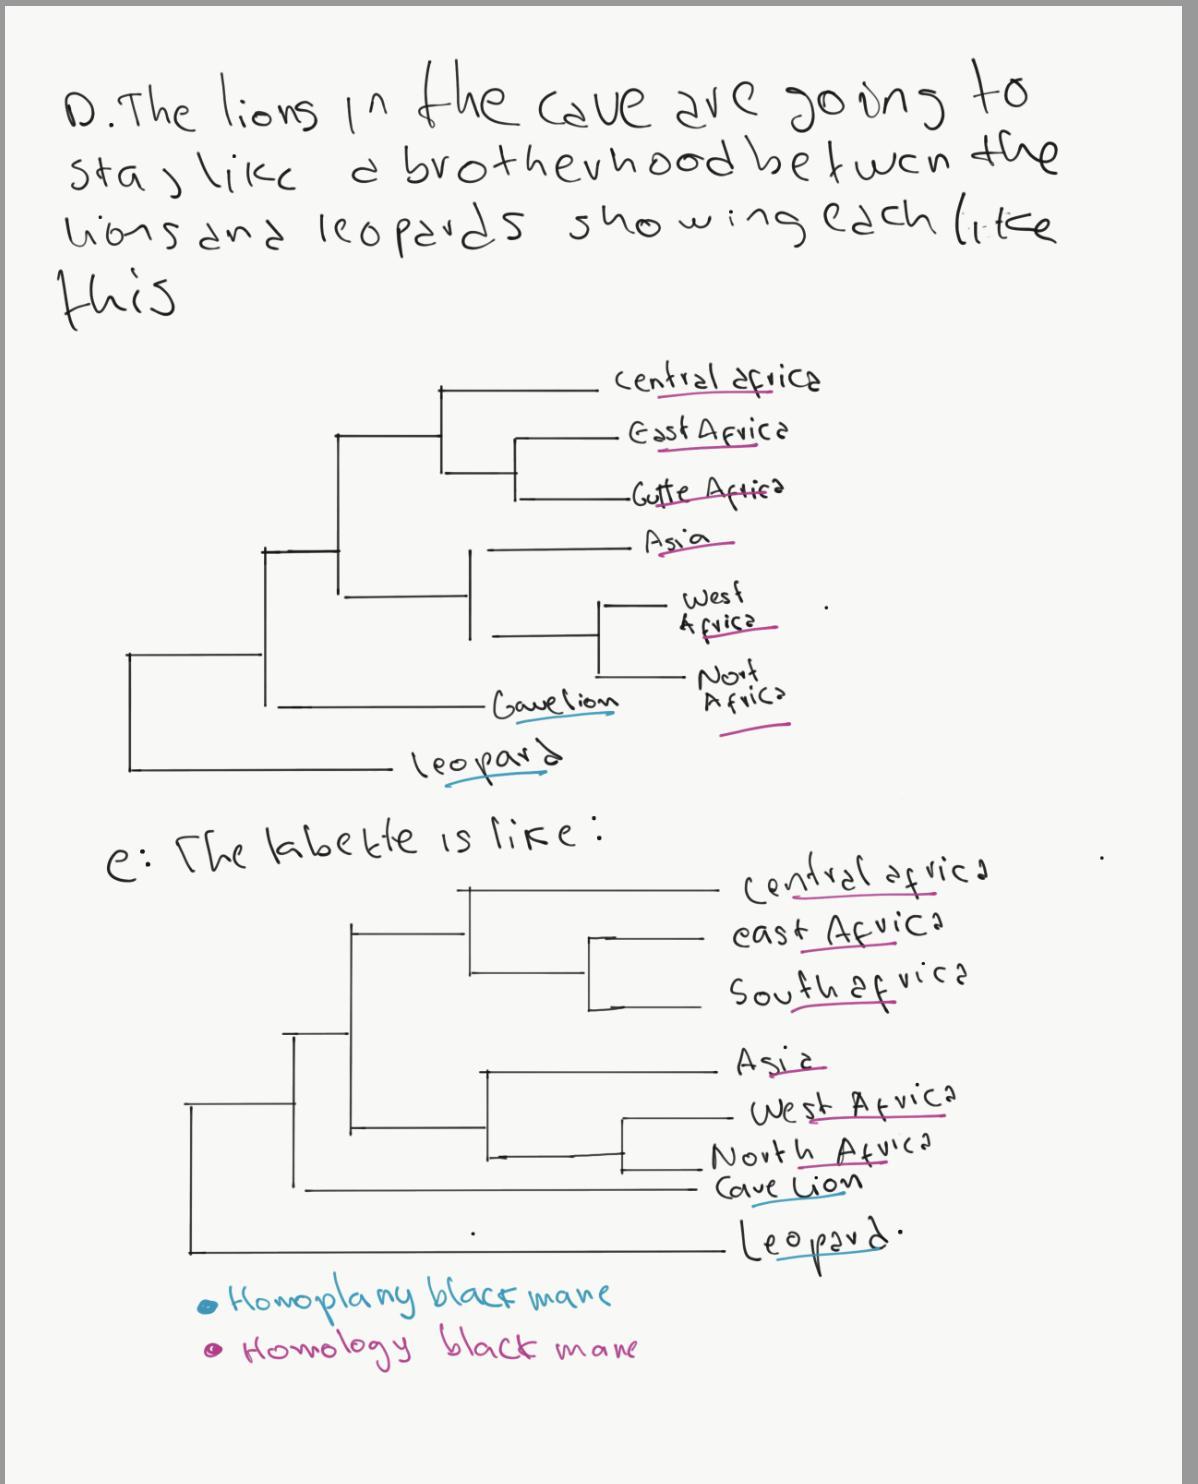 D. The lions in the cave are going to
stay like a brotherhood betwen the
lions and leopards showing each like
this
Central africa
East Africa
Gutte Africa
Asia
West
Africa
Nort
Africa
Cavelion
leopard
e: The labette is like:
Central africa
east Africa
South africa
Asia
West Africa
North Africa
Cave Lion
Leopard.
• Homoplany black mane
• Homology black mane